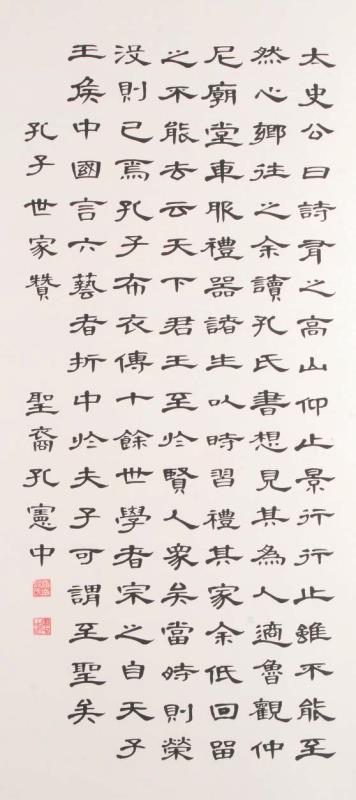 太史公曰詩有之高山仰止景行行止雖不能至
然心鄉往之余讀孔氏書想見其為人適魯觀仲
尼廟堂車服禮器諸生以時習禮其家余低回留
之不能去云天下君王至於賢人衆矣當時則榮
沒則已焉孔子布衣傳十餘世學者宗之自天子
王侯中國言六藝者折中於夫子可謂至聖矣
孔子世家贊 聖裔孔憲中